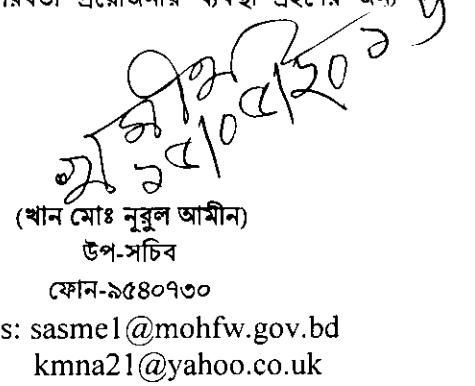 প্রয়োজনীয় ব্যবস্থা গ্রহণের জন্য
(খান মোঃ নূরুল আমীন)
উপ-সচিব
ফোন-৯৫৪০৭৩০
s: sasme1@mohfw.gov.bd
kmna21@yahoo.co.uk